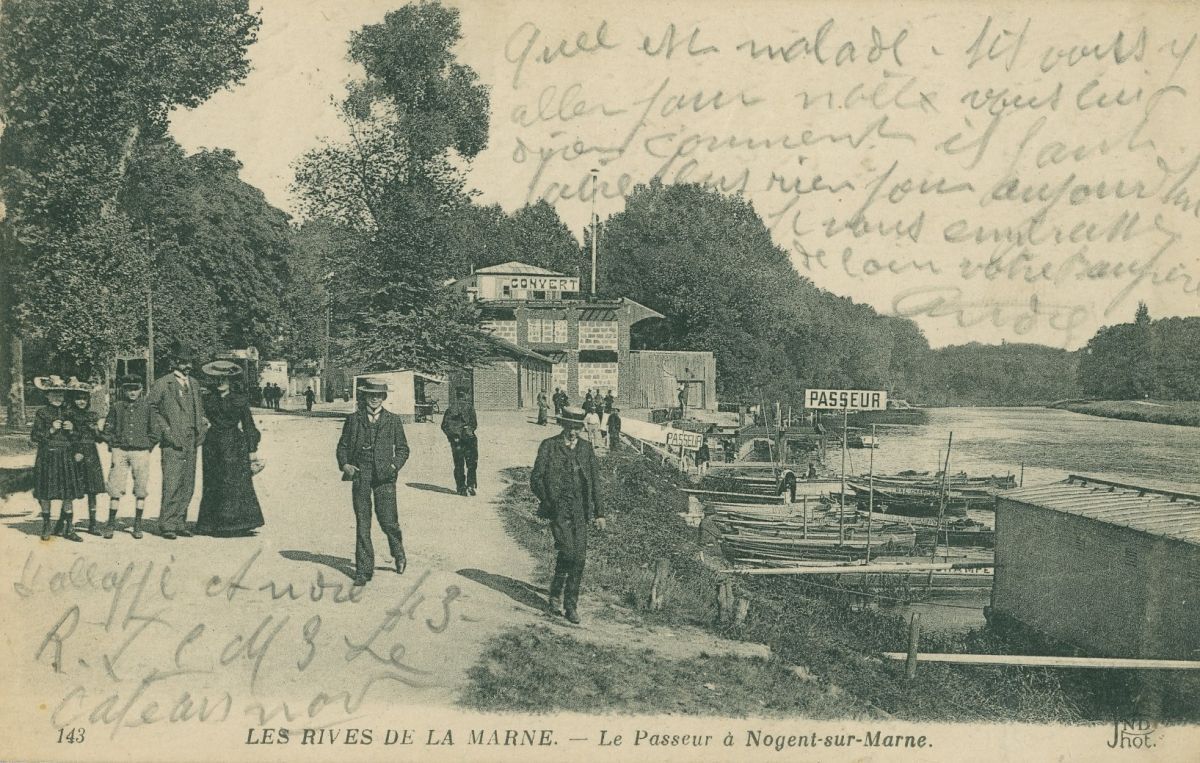 Quel est malade. sit vous y
aller pour notex vous lui
direz comment il faut
faire plus rien pour aujourd'hui
Je vous embrasse
de loin votre
André
CONVERT
PASSEUR
PASSEUR
André 43.
R. I. C M 3 Le
Cateau nor
143 LES RIVES DE LA MARNE. — Le Passeur à Nogent-sur-Marne.
ND Phot.